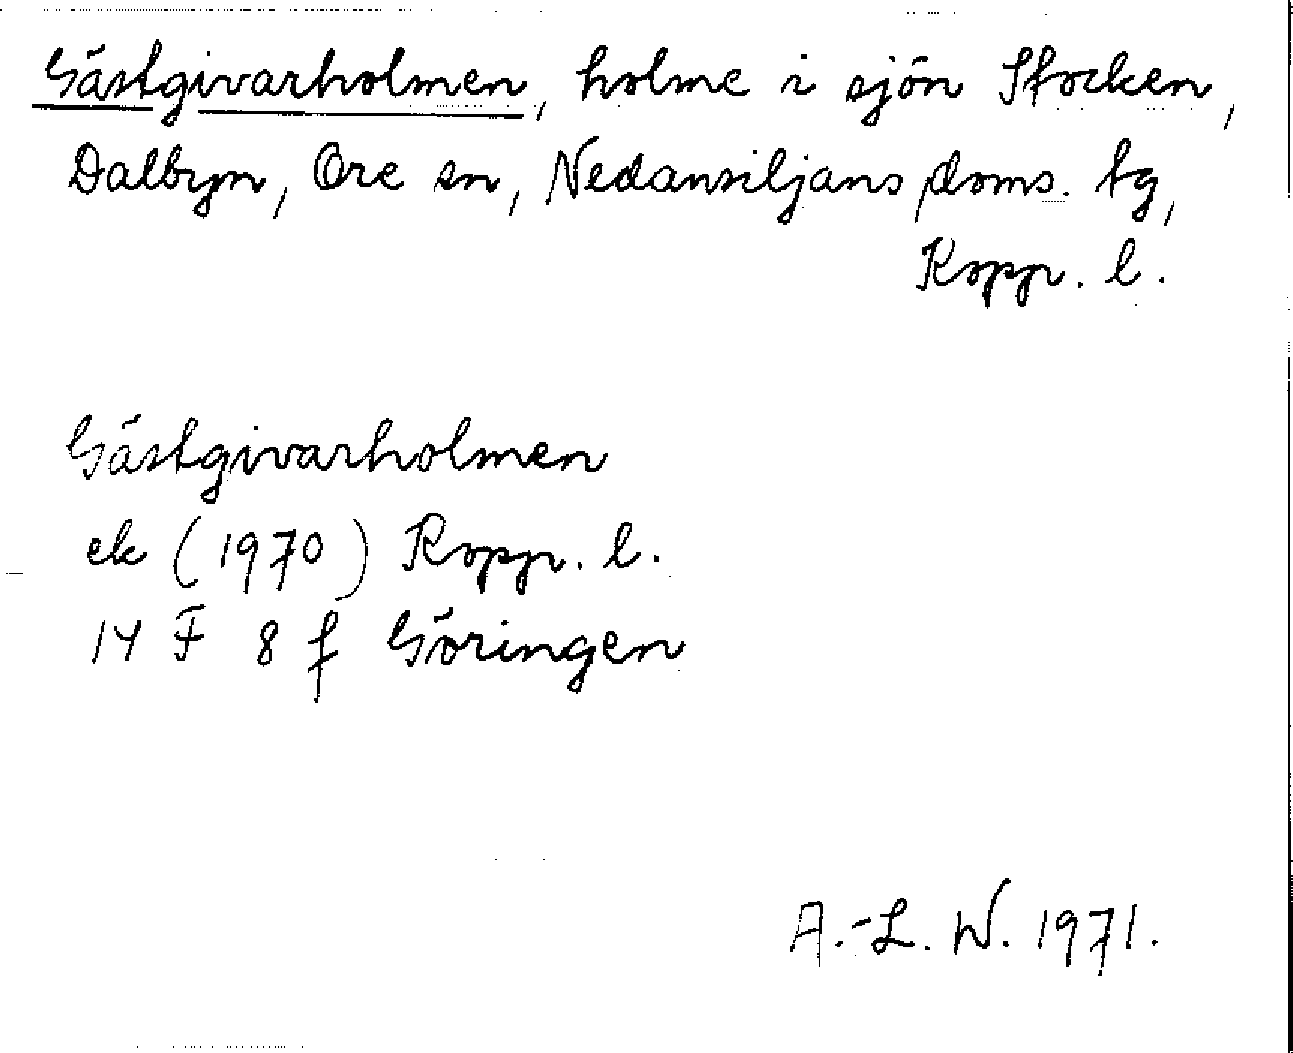 Gästgivarholmen, holme i sjön Stocken,
Dalbyn, Ore sn, Nedansiljans doms. tg,
Kopp. l.
Gästgivarholmen
ek (1970) Kopp. l.
14 F 8 f Göringen
A.-L. W. 1971.